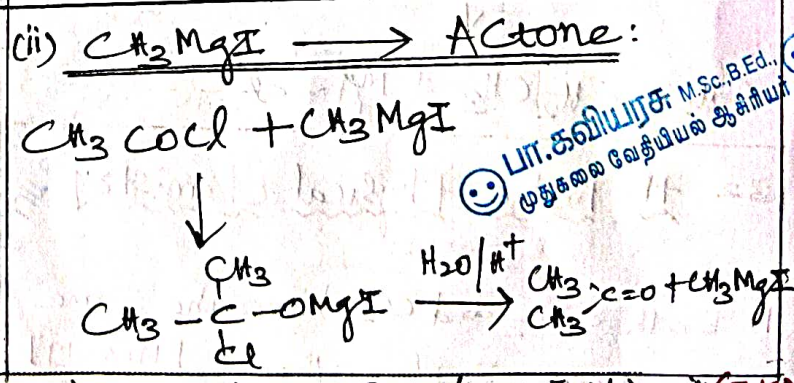 (ii) CH3MgI → ACtone:
CH3COCl + CH3MgI
பா.கவியரசு M.Sc.,B.Ed.,
முதுகலை வேதியியல் ஆசிரியர்
↓
CH3
CH3 - C - OMgI H2O/H+ → CH3 CH3 > C=O + CH3MgI
Cl